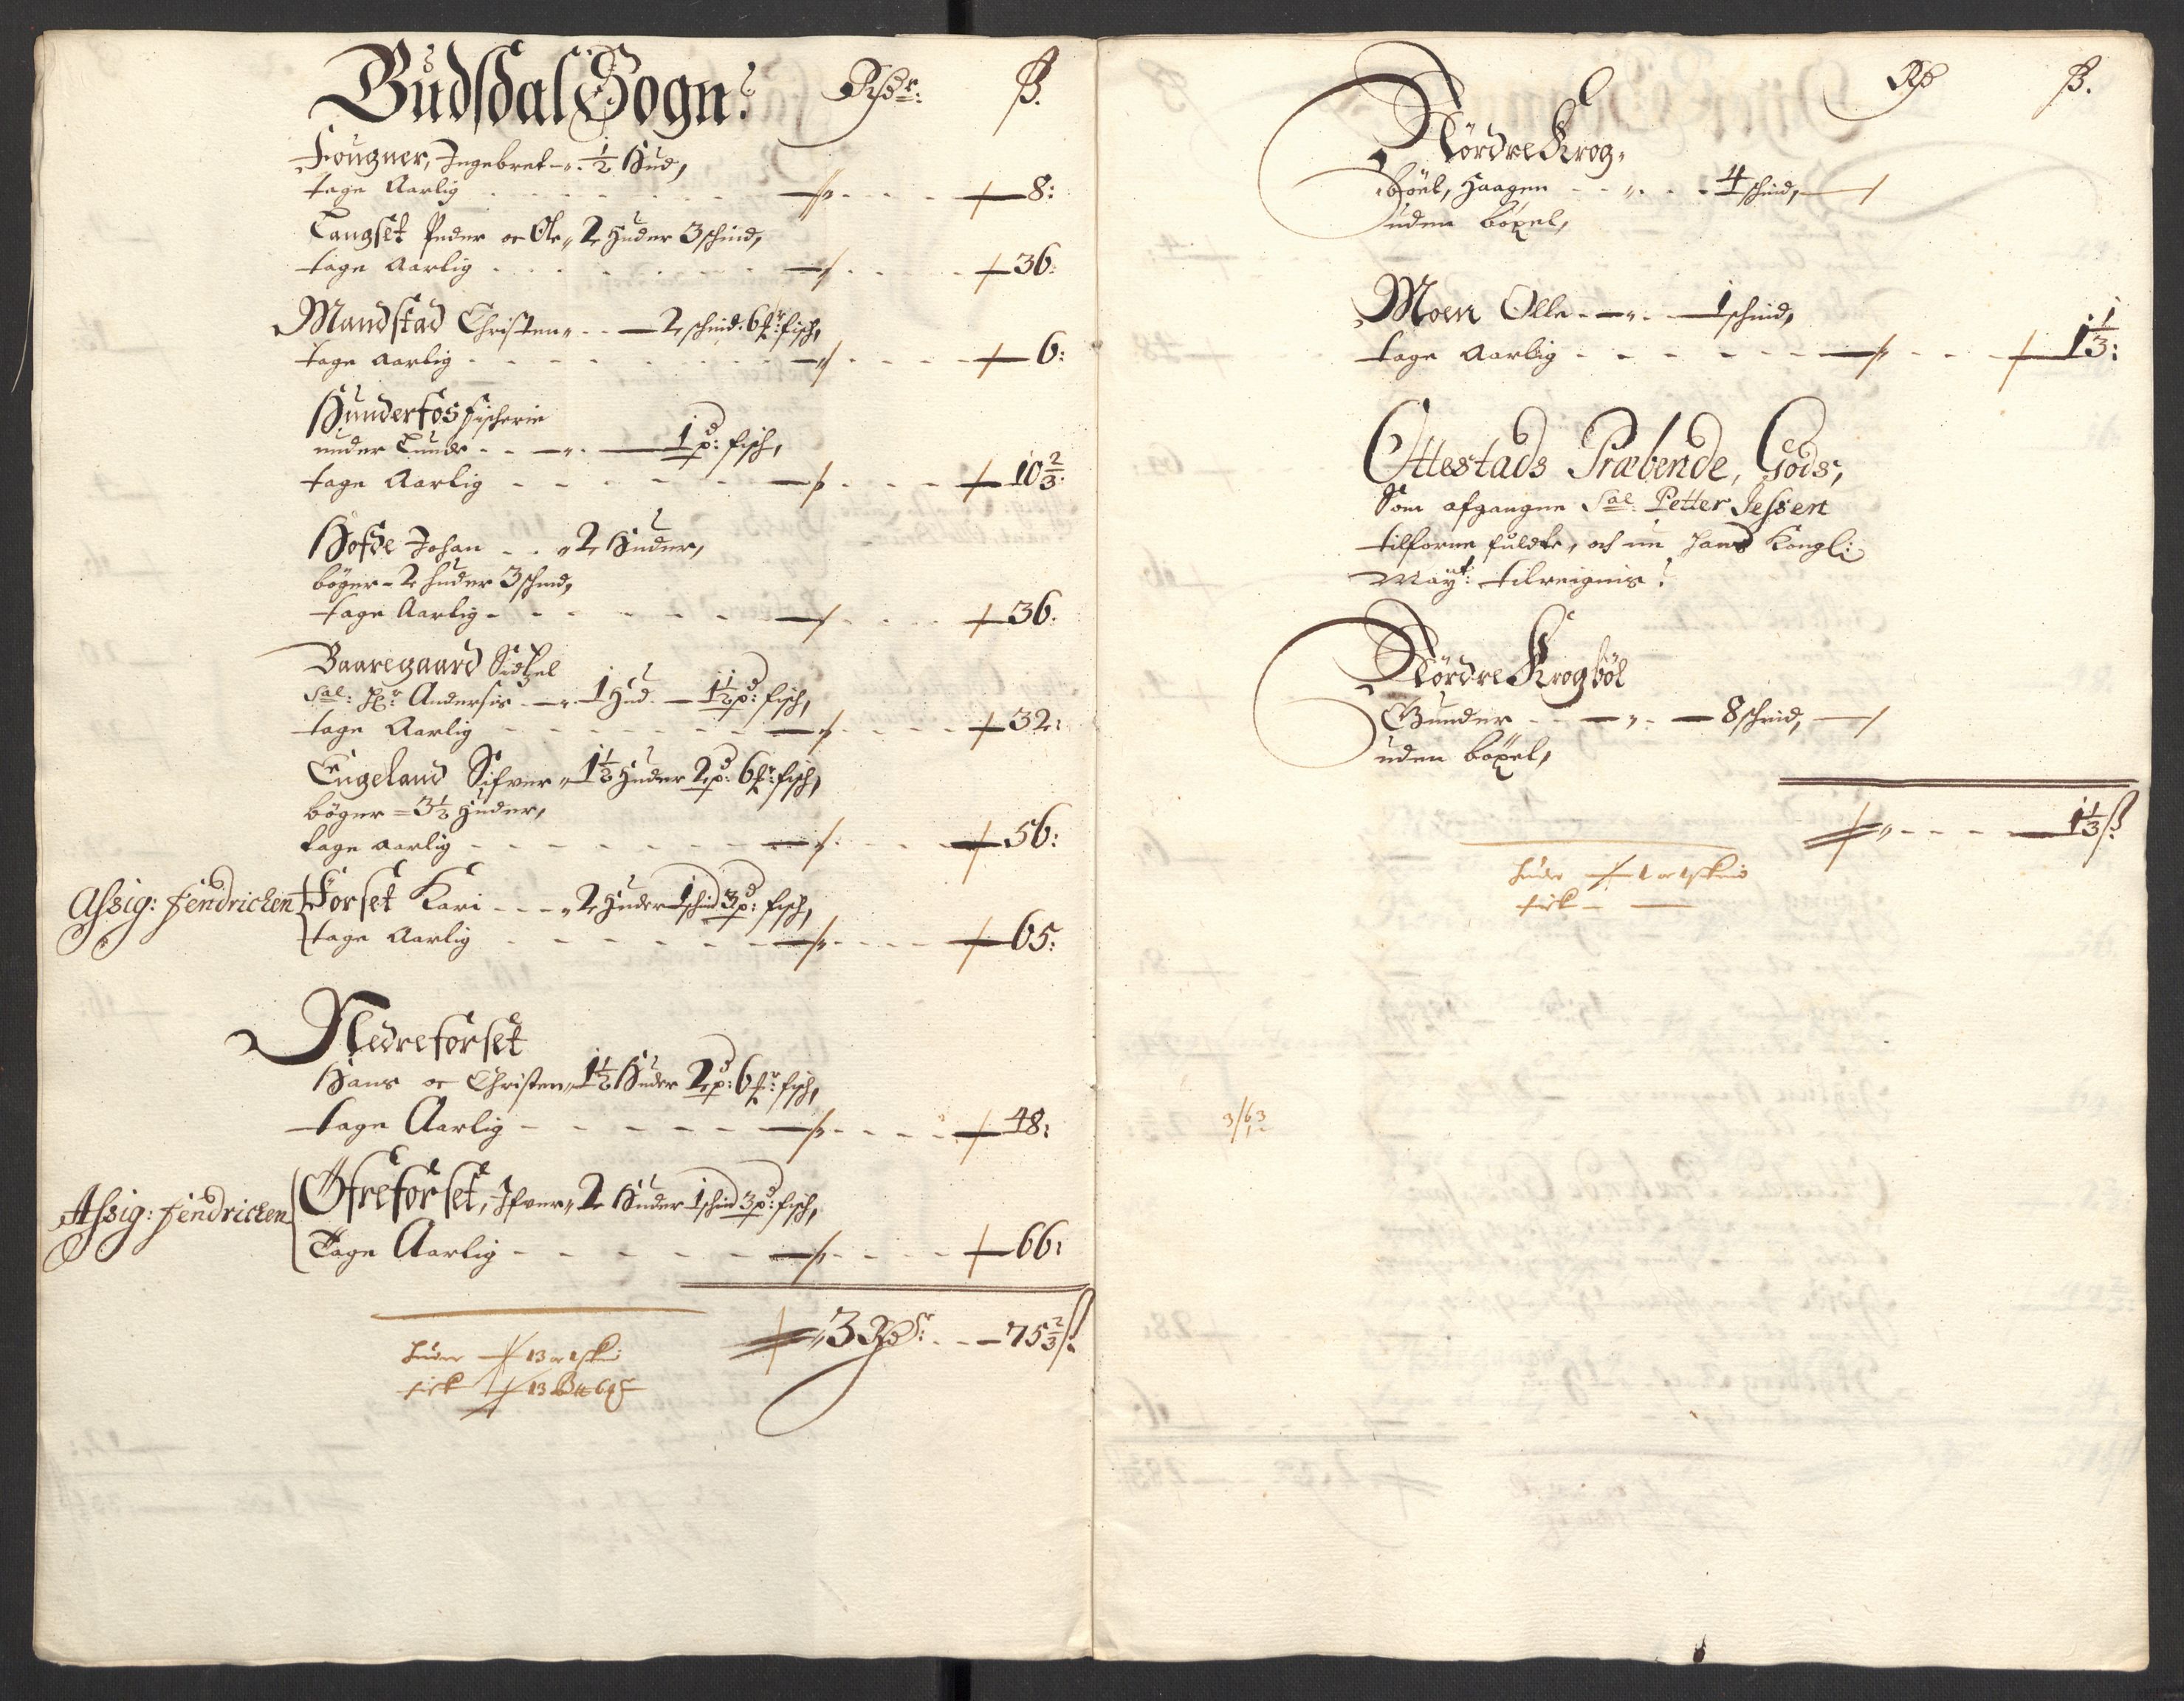 Budsdal Sogn: Rdr: ß.
Fougner, Ingebret - „ ½ Hud,
tage Aarlig - - - „ - - 8:
Langset Peder oc Ole „ 2 Huder 3 schind,
tage Aarlig - - - „ - - 36:
Mandstad Christen „ - - 2 schind: 6 fr: fisch,
tage Aarlig - - - „ - - 6:
Hunderfos fischerie
under Lunde - - „ - 1 pd: fisch,
tage Aarlig - - - „ - - 10 2/3:
Hofde Johan - - „ 2 Huder,
böger - 2 huder 3 schind,
tage Aarlig - - - „ - - 36.
Baaregaard Sidzel
Sal: Hr: Andersis - „ - 1 Hud - 1½ pd: fisch,
tage Aarlig - - - „ - - 32:
Engeland Sifver „ 1½ Huder 2 pd: 6 fr: fisch,
böger = 3½ Huder,
tage aarlig - - - „ - - 56:
Assig: fendricken Forset Kari - - „ 2 Huder 1 schind 3 pd: fisch,
tage Aarlig - - - „ - - 65:
Nedreforset
Hans oc Christen „ 1½ Huder 2 pd: 6 fr: fisch,
tage Aarlig - - - „ - - 48:
Assig: fendricken Öfreforset, Ifver „ 2 Huder 1 schind 3 pd: fisch,
Tage Aarlig - - - „ - - 66:
„ 3 Rdr: - - 75 2/3 ß.
huder 13 oc 1 skin
fisk 13
Rd ß.
Nördre Krog-
böel, Haagen - - „ - - 4 schind,
uden böxel,
Moen Olle - - „ - 1 schind,
tage Aarlig - - - „ - - 1 1/3:
Ottestads Præbende, Gods,
Som afgangne Sal: Petter Jessen
tilforne fuldte, och nu Hans Kongl:
Mayt: tilreignis.
Nördre Krogböl
Gunder - - „ - 8 schind,
uden böxel,
„ - - - 1 1/3 ß
huder 1 oc 1 skind
fisk - -
3/63